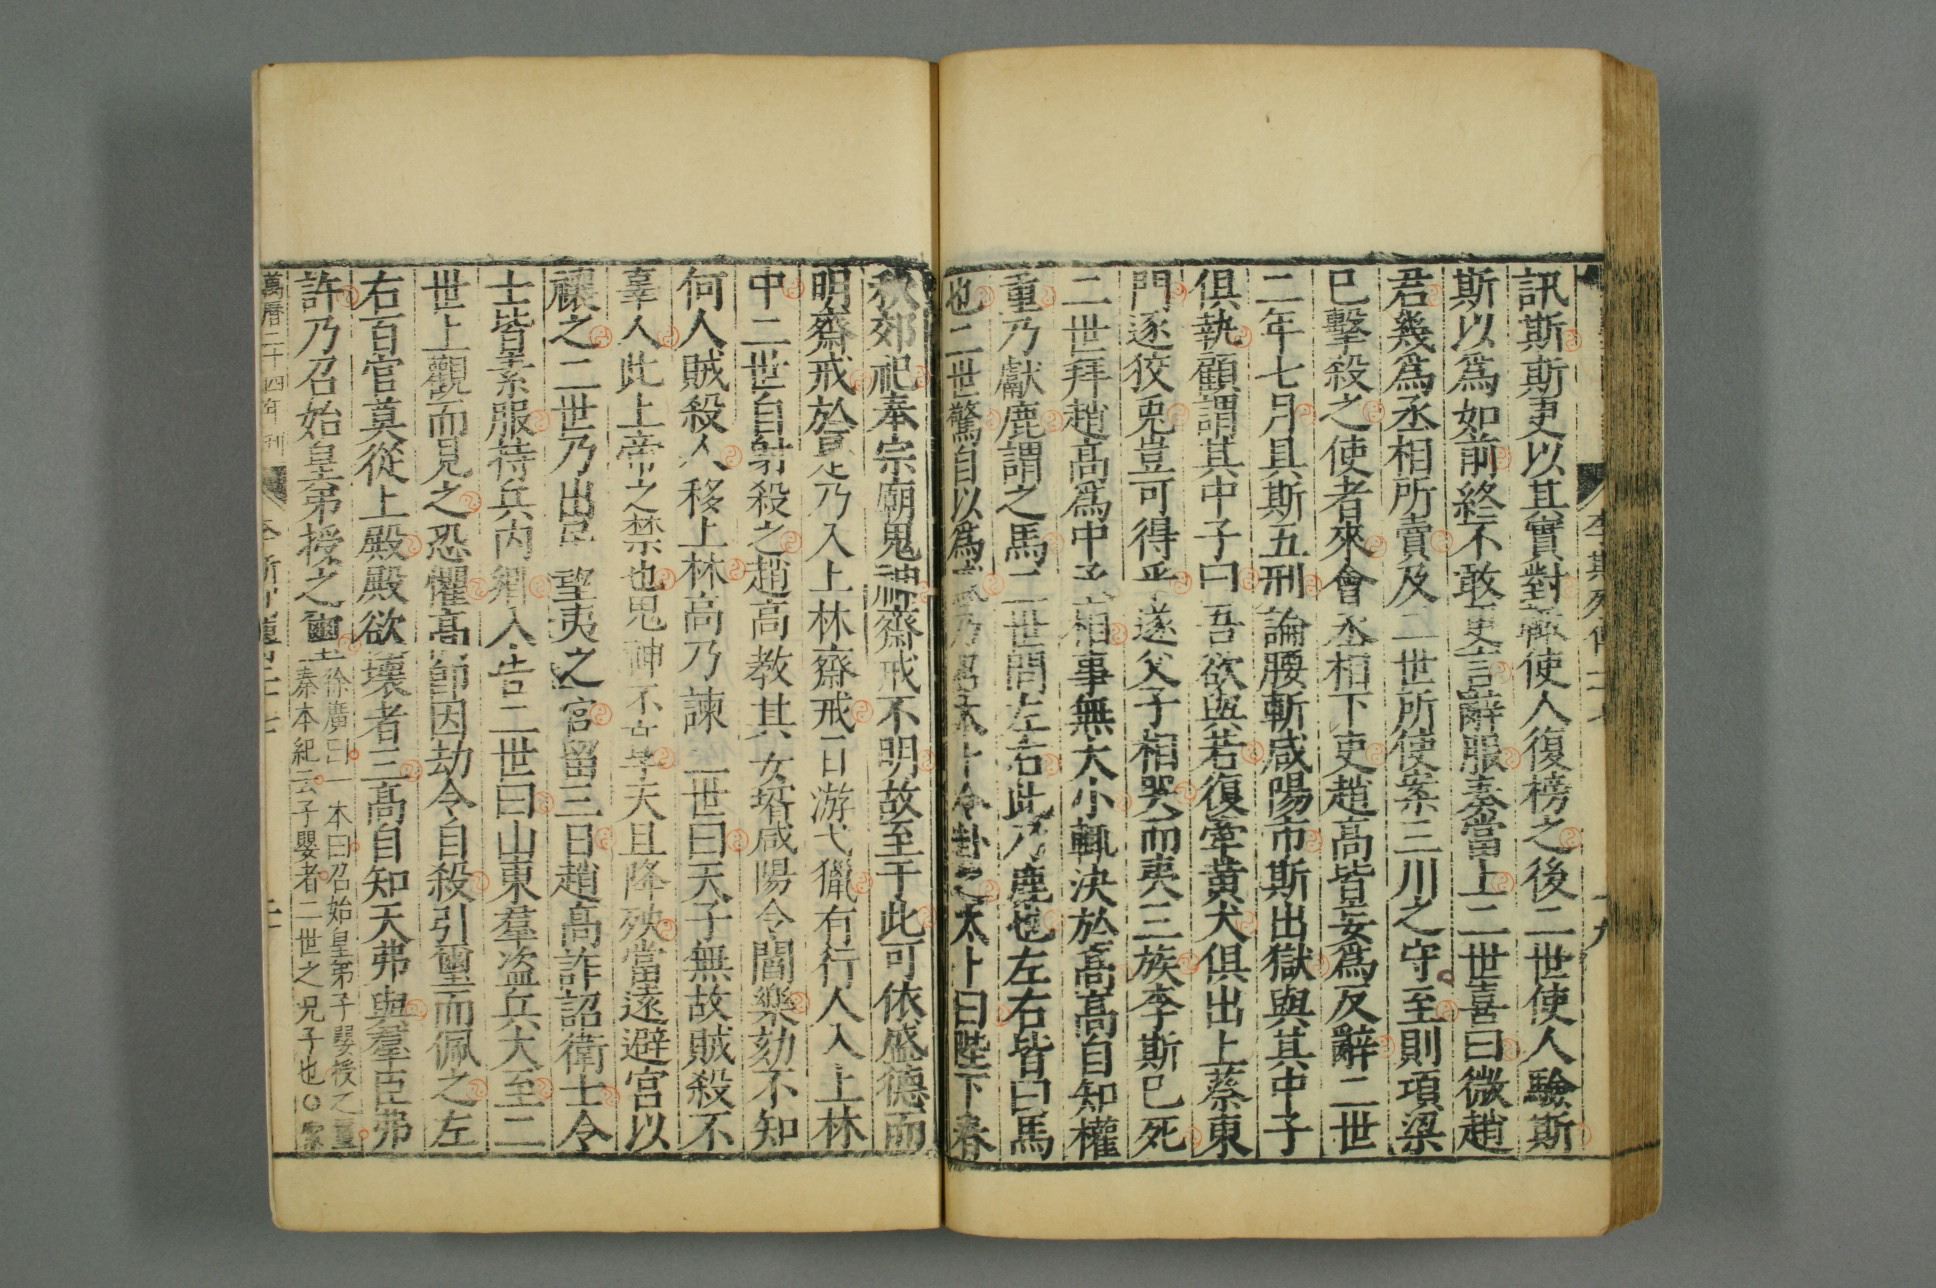 李斯列傳二十七
十九
訊斯斯更以其實對輒使人復榜之後二世使人驗斯
斯以爲如前終不敢更言辭服奏當上二世喜曰微趙
君幾爲丞相所賣及二世所使案三川之守至則項梁
已擊殺之使者來會丞相下吏趙高皆妄爲反辭二世
二年七月具斯五刑論腰斬咸陽市斯出獄與其中子
俱執顧謂其中子曰吾欲與若復牽黃犬俱出上蔡東
門逐狡兎豈可得乎遂父子相哭而夷三族李斯已死
二世拜趙高爲中丞相事無大小輒決於高高自知權
重乃獻鹿謂之馬二世問左右此乃鹿也左右皆曰馬
也二世驚自以爲惑乃召太卜令卦之太卜曰陛下春
秋郊祀奉宗廟鬼神齋戒不明故至于此可依盛德而
明齋戒於是乃入上林齋戒日游弋獵有行人入上林
中二世自射殺之趙高教其女壻咸陽令閻樂劾不知
何人賊殺人移上林高乃諫二世曰天子無故賊殺不
辜人此上帝之禁也鬼神不享天且降殃當遠避宮以
禳之二世乃出居望夷之宮留三日趙高詐詔衛士令
士皆素服持兵内鄉入告二世曰山東羣盜兵大至二
世上觀而見之恐懼高即因劫令自殺引璽而佩之左
右百官莫從上殿殿欲壞者三高自知天弗與羣臣弗
許乃召始皇弟授之璽
徐廣曰一本曰召始皇弟子嬰授之璽
秦本紀云子嬰者二世之兄子也○案
萬曆二十四年刊
二十七